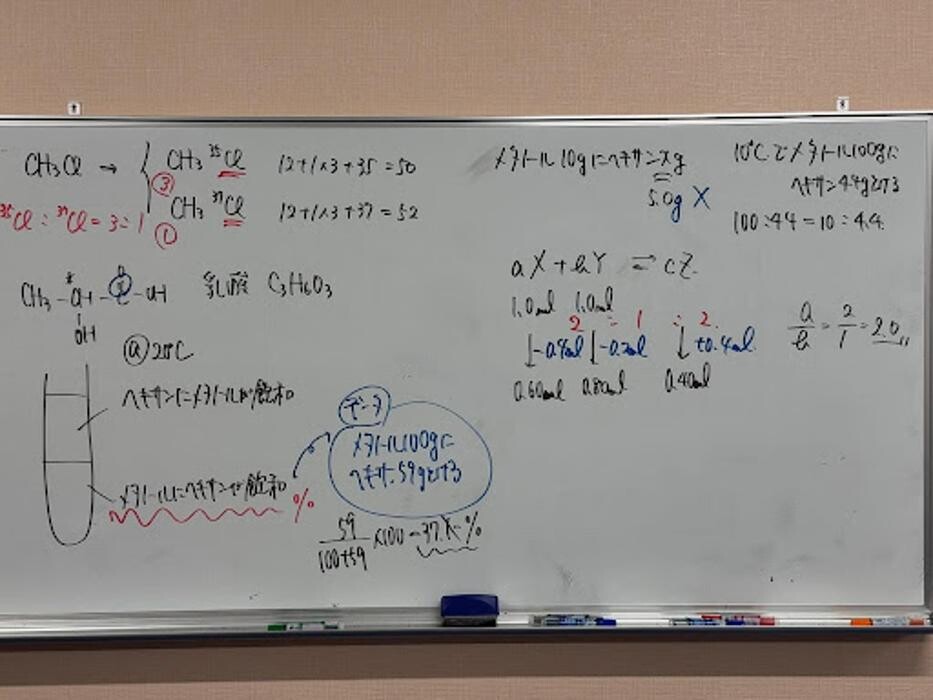 CH₃Cl → { CH₃ ³⁵Cl 12+1×3+35=50
③
CH₃ ³⁷Cl 12+1×3+37=52
①
³⁵Cl : ³⁷Cl = 3 : 1
CH₃ - *CH - C - OH 乳酸 C₃H₆O₃
O
OH
@ 25°C
ヘキサンにメタノールが飽和
メタノールにヘキサンが飽和 %
データ
メタノール100gに
ヘキサン59gとける
59
100+59
×100 = 37. %
メタノール10gにヘキサンxg
5.0g X
10°Cでメタノール100gに
ヘキサン44gとける
100:44=10:4.4
aX+bY ⇄ cZ
1.0mol 1.0mol
2 : 1 : 2
↓-0.4mol ↓-0.2mol ↓+0.4mol
0.60mol 0.80mol 0.40mol
a/b = 2/1 = 2.0